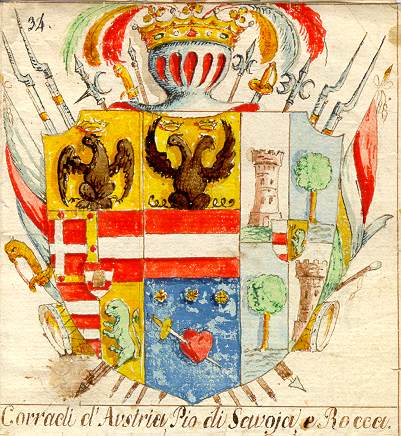 34.
Corradi d'Avstria Pio di Savoja, e Rocca.